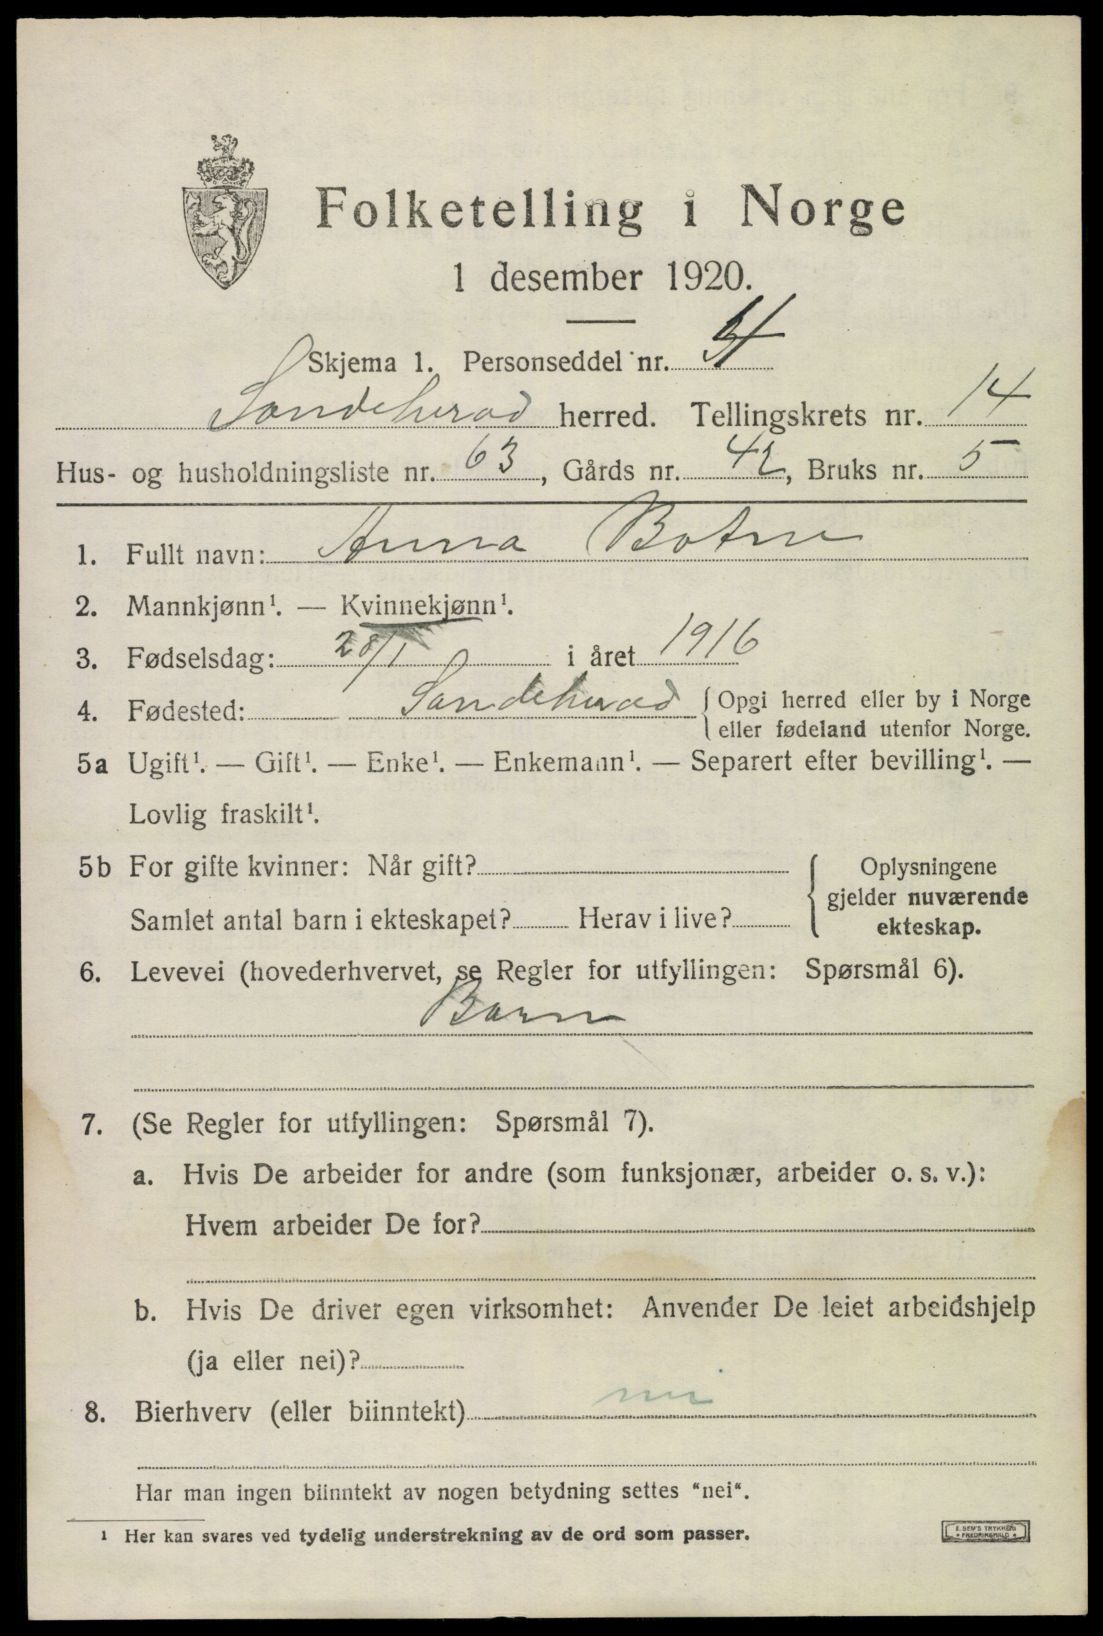 Folketelling i Norge
1 desember 1920.
Skjema 1. Personseddel nr.
Sandeherad herred. Tellingskrets nr. 14
Hus- og husholdningsliste nr. 63, Gårds nr. 42, Bruks nr. 5
1. Fullt navn: Anna Botne
2. Mannkjønn¹. — Kvinnekjønn¹.
3. Fødselsdag: 28/1 i året 1916
4. Fødested: Sandeherad {Opgi herred eller by i Norge
eller fødeland utenfor Norge.
5a Ugift¹. — Gift¹. — Enke¹. — Enkemann¹. — Separert efter bevilling¹. —
Lovlig fraskilt¹.
5b For gifte kvinner: Når gift?
Samlet antal barn i ekteskapet? Herav i live?
Oplysningene
gjelder nuværende
ekteskap.
6. Levevei (hovederhvervet, se Regler for utfyllingen: Spørsmål 6).
Barn
7. (Se Regler for utfyllingen: Spørsmål 7).
a. Hvis De arbeider for andre (som funksjonær, arbeider o. s. v.):
Hvem arbeider De for?
b. Hvis De driver egen virksomhet: Anvender De leiet arbeidshjelp
(ja eller nei)?
8. Bierhverv (eller biinntekt) nei
Har man ingen biinntekt av nogen betydning settes "nei".
¹ Her kan svares ved tydelig understrekning av de ord som passer.
E. SEM'S TRYKKERI
FREDRIKSHALD